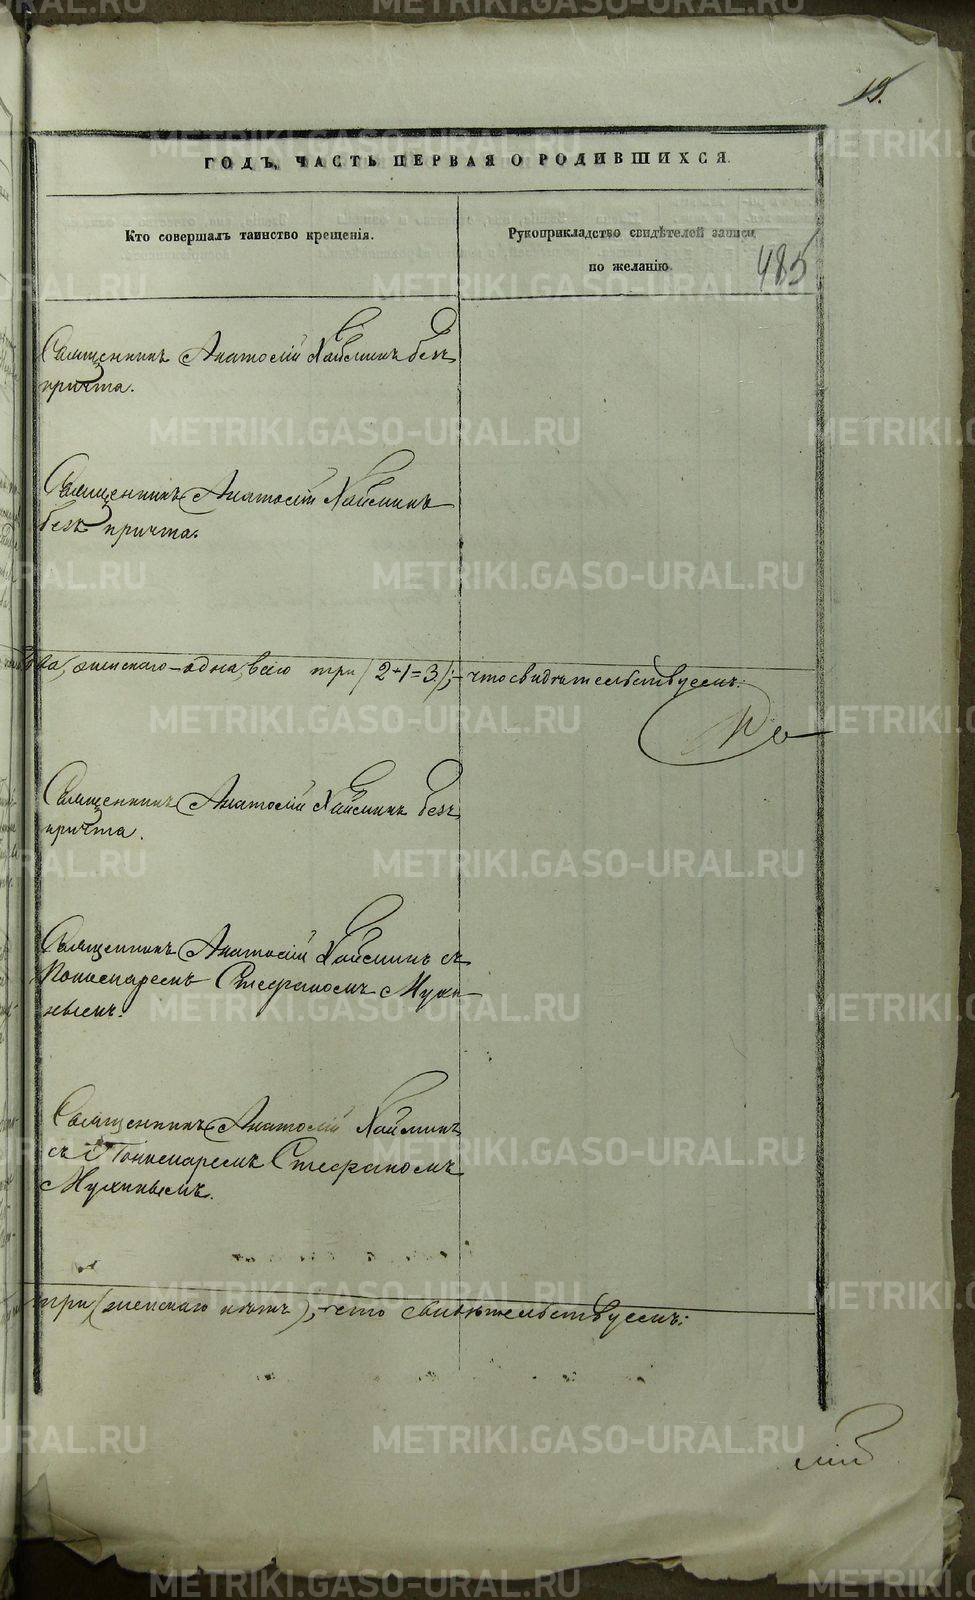 19.
ГОДЪ, ЧАСТЬ ПЕРВАЯ О РОДИВШИХСЯ.
Кто совершалъ таинство крещенія.
Рукоприкладство свидѣтелей записи
по желанію.
485
Священникъ Анатолій Хаймин безъ
причта.
Священникъ Анатолій Хайминъ
безъ причта.
два, женскаго–одна, всего три (2+1=3.);–что свидѣтельствуемъ:
Священникъ Анатолій Хайминъ безъ
причта.
Священникъ Анатолій Хайминъ съ
Пономаремъ Стефаномъ Мухи-
нымъ.
Священникъ Анатолій Хайминъ
съ Пономаремъ Стефаномъ
Мухинымъ.
три (женскаго нѣтъ);–что свидѣтельствуемъ:
METRIKI.GASO-URAL.RU